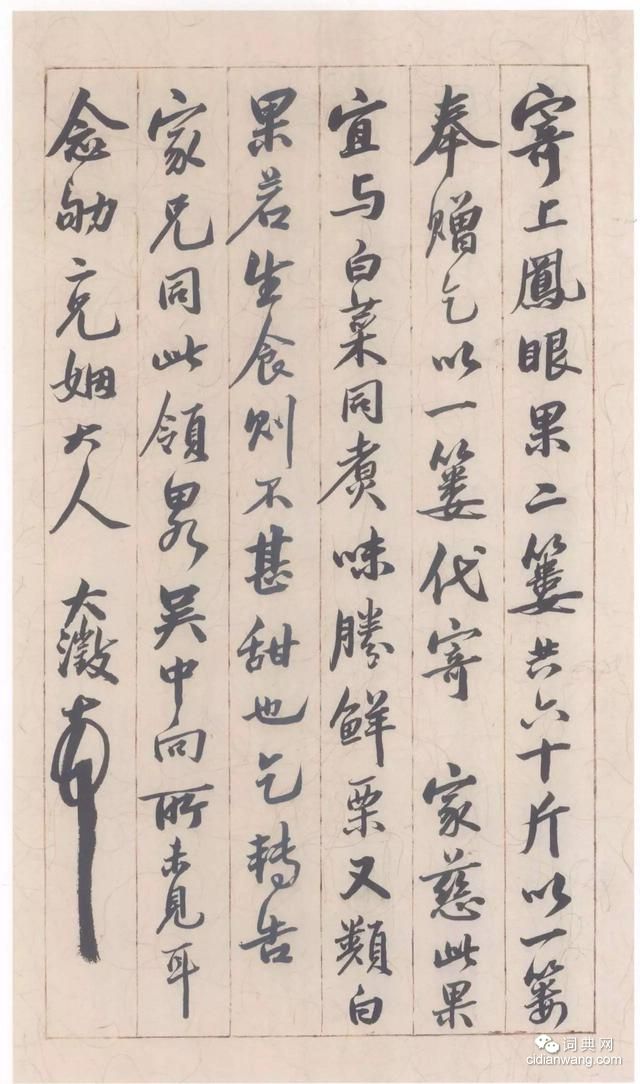 寄上鳳眼果二簍共六十斤以一簍
奉赠乞以一簍代寄 家慈此果
宜与白菜同煑味勝鲜栗又類白
果若生食则不甚甜也乞轉告
家兄同此領畧吴中向所未見耳
念劬二兄姻大人 大澂
词典网
cidianwang.com